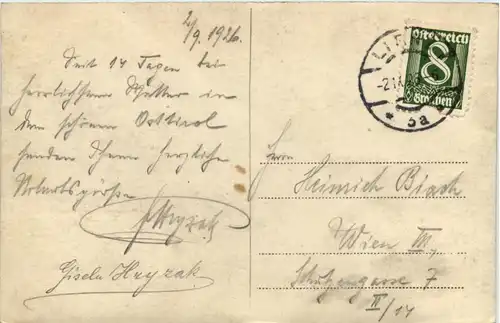 2/9. 1926.
Seit 14 Tagen bei
herrlichstem Wetter in
dem schönen Osttirol
senden Ihnen herzliche
Urlaubsgrüße
Hryzak
Gisela Hryzak.
Österreich
8
Groschen
LIENZ
-2.IX.26
* 5a
Herrn
Heinrich Bloch
Wien III,
Schützengasse 7
II/14